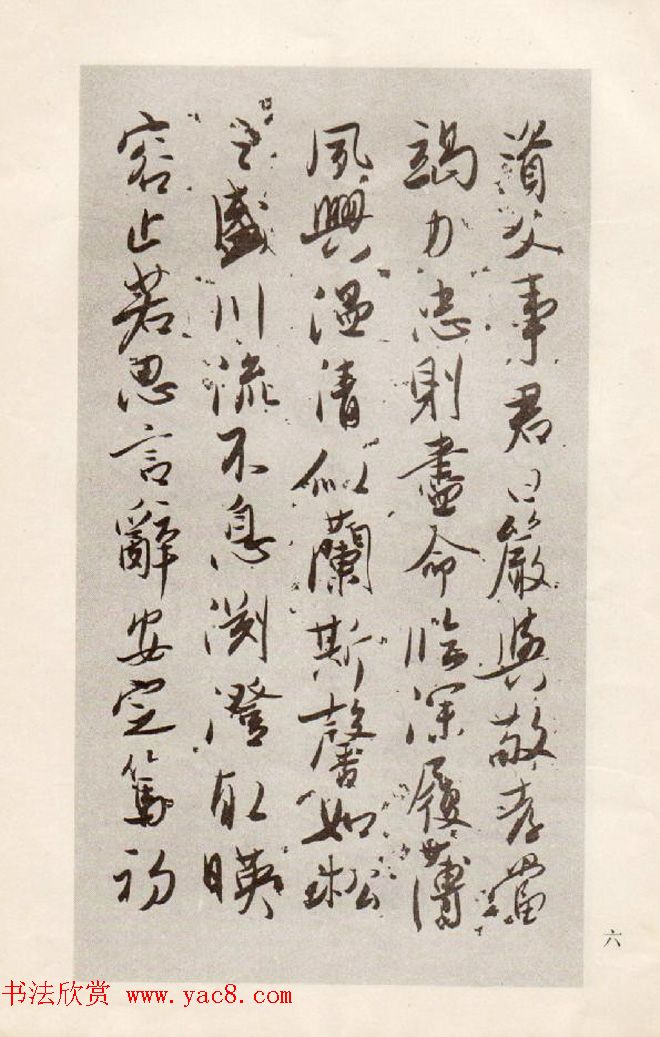 資父事君曰嚴與敬孝當
竭力忠則盡命臨深履薄
夙興温清似蘭斯馨如松
之盛川流不息淵澄取暎
容止若思言辭安定篤初
六
书法欣赏 www.yac8.com